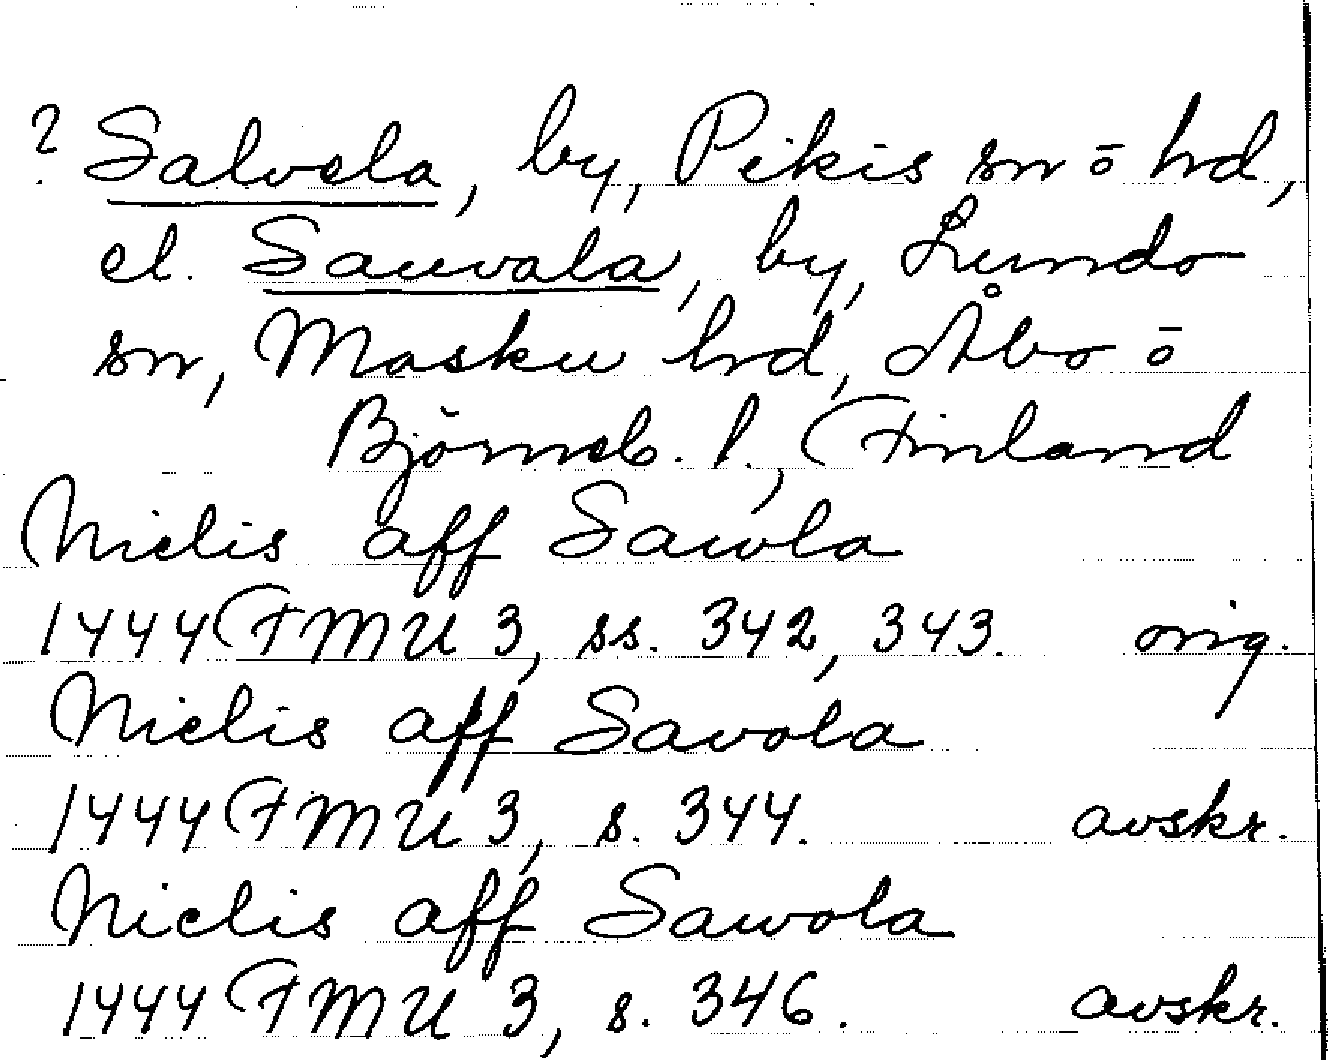 ? Salvela, by, Pikis sn ō hd,
el. Sauvala, by, Lundo
sn, Masku hd, Åbo ō
Björneb. l., Finland
Nielis aff Sawla
1444 FMU 3, ss. 342, 343. orig.
Nielis aff Savola
1444 FMU 3, s. 344. avskr.
Nielis aff Sawola
1444 FMU 3, s. 346. avskr.